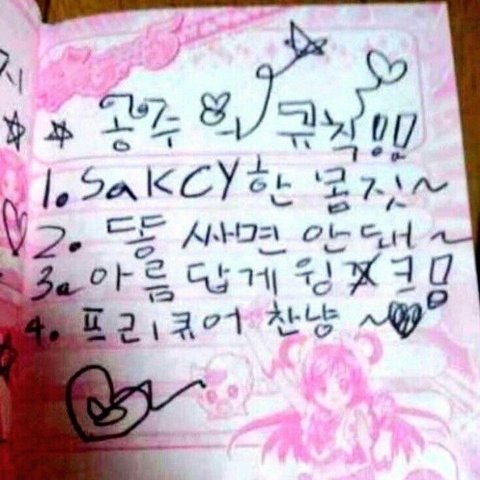 공주의 규칙!!
1. SaKCY한 몸짓~
2. 똥 싸면 안돼~
3. 아름답게 윙크!!
4. 프리큐어 찬냥 ~